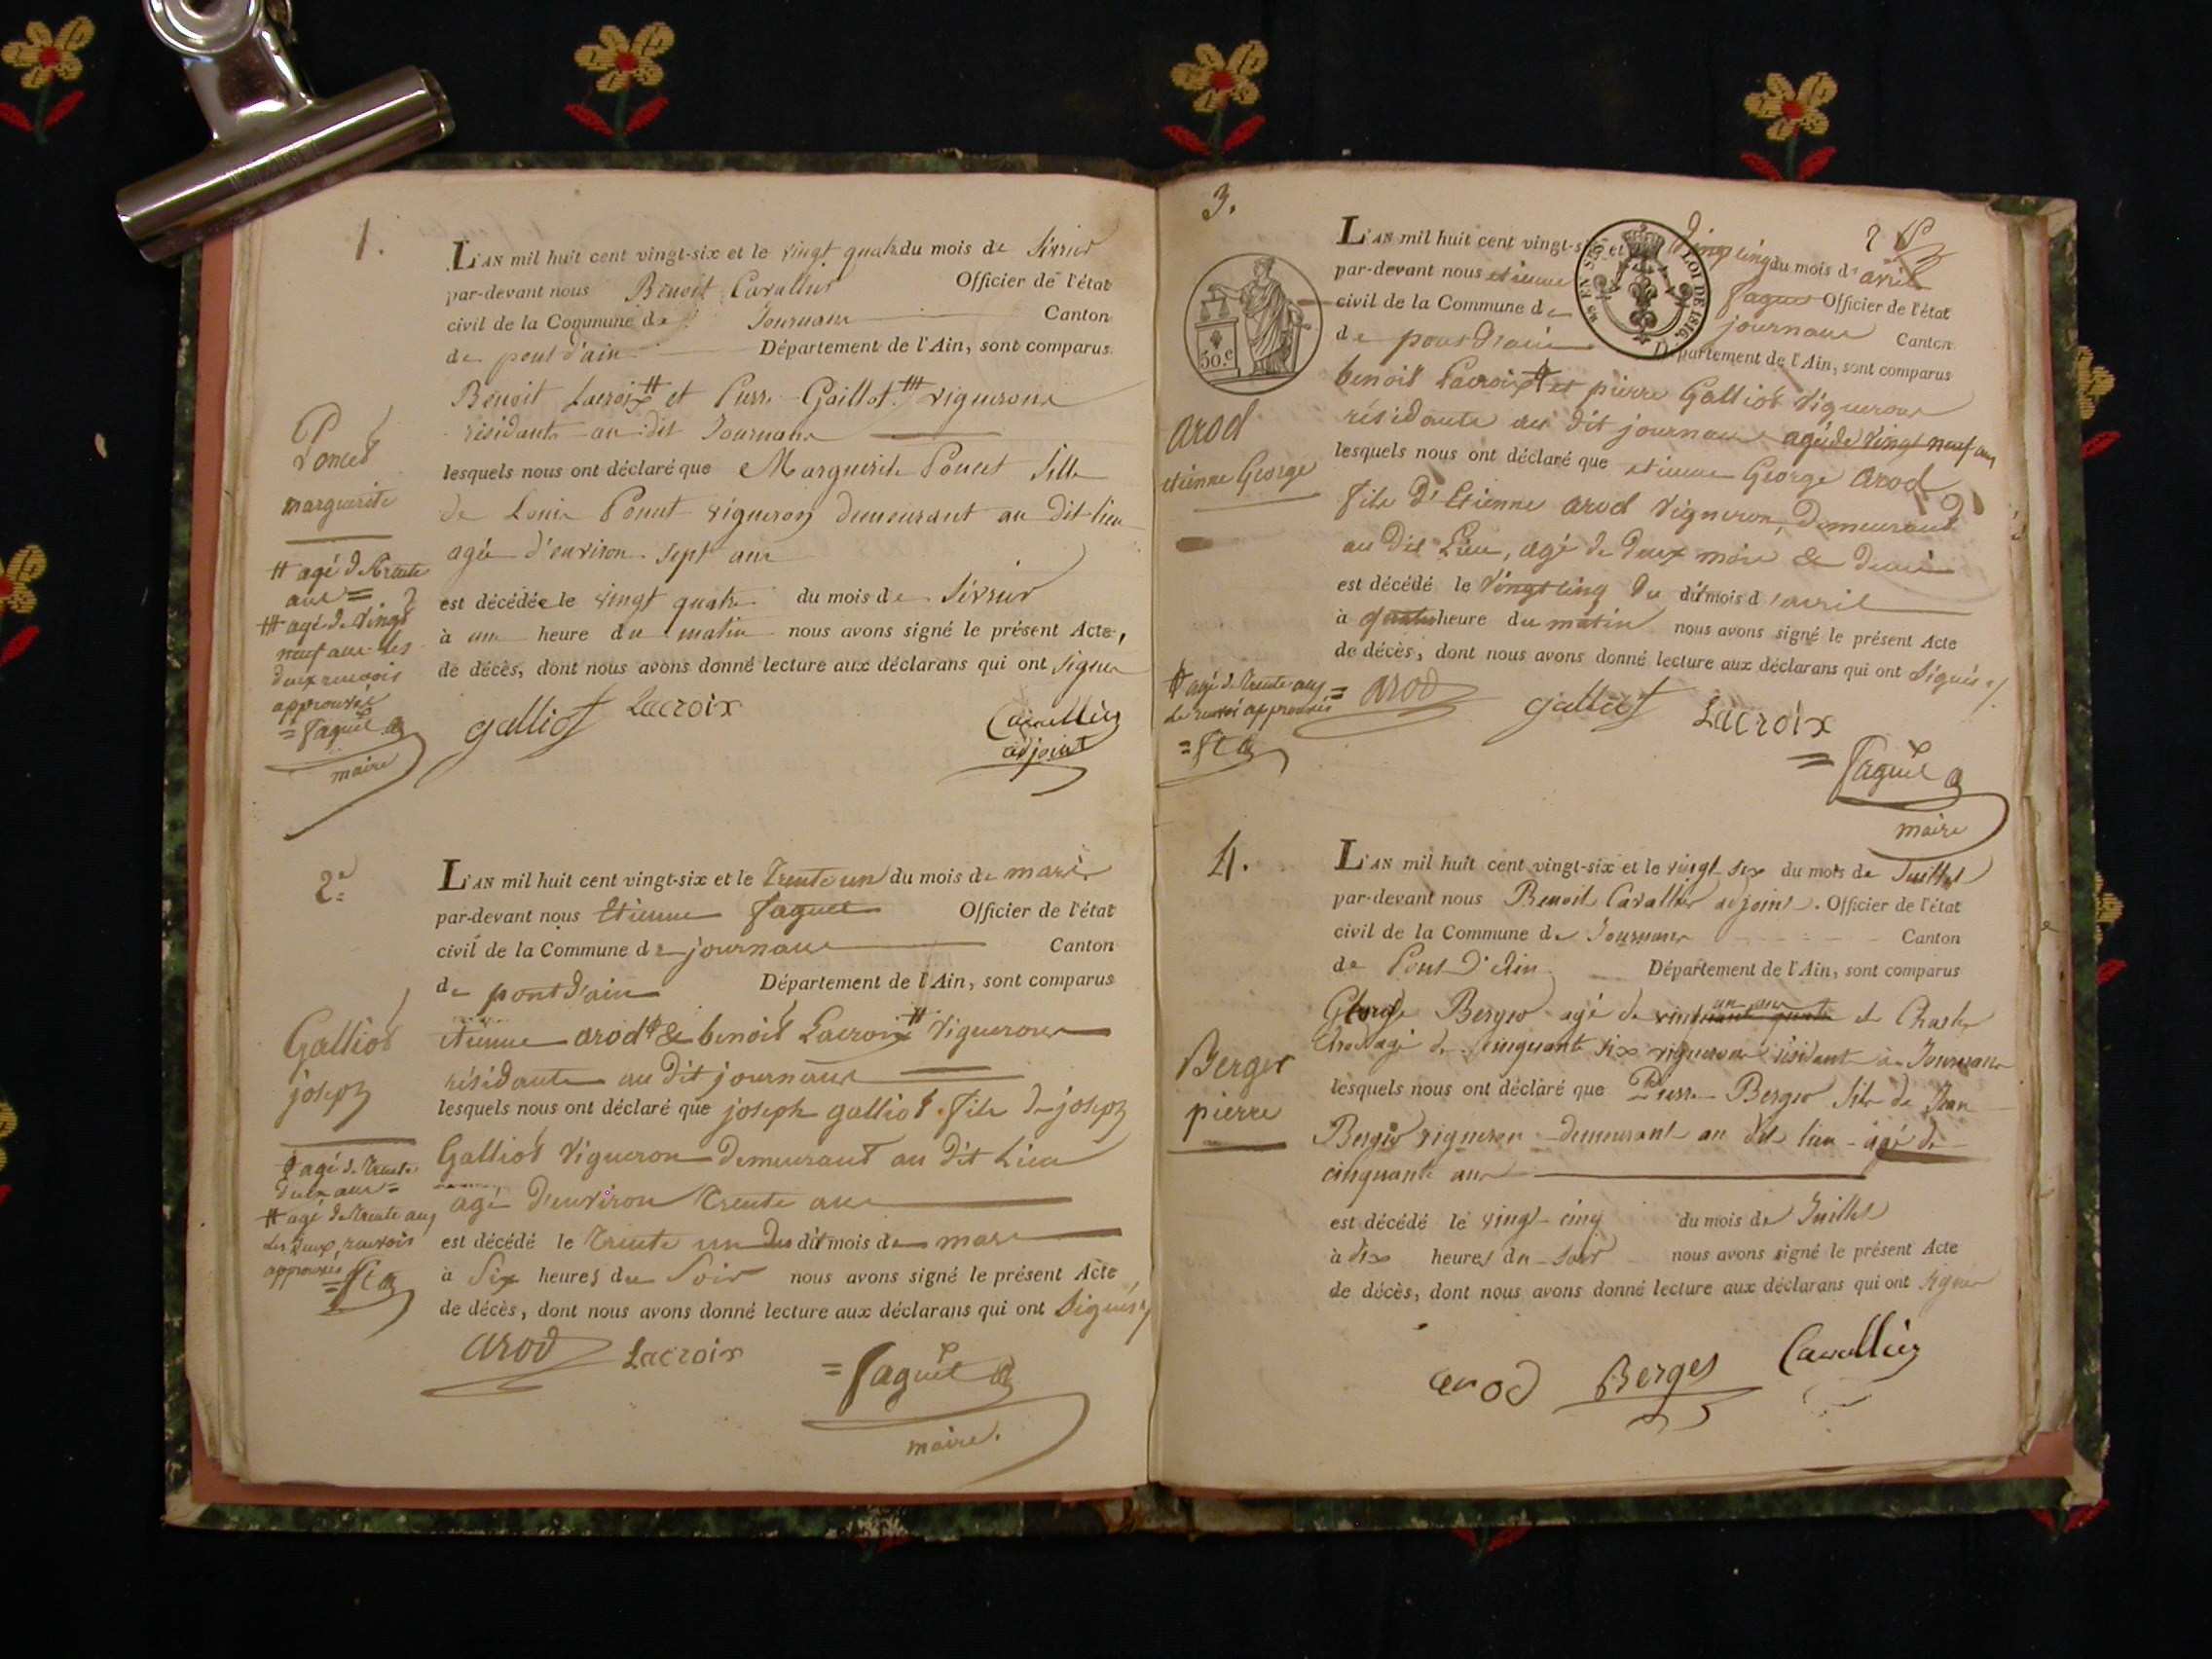 1.
L'AN mil huit cent vingt-six et le vingt quatre du mois de février
par-devant nous Benoit Cavallier Officier de l'état
civil de la Commune de Journans Canton
de pont d'ain Département de l'Ain, sont comparus
Benoit Lacroix # et Pierre Gaillot vignerons
résidants au dit Journans
lesquels nous ont déclaré que Marguerite Poncet fille
de Louis Poncet vigneron demeurant au dit lieu
agée d'environ sept ans
est décédée le vingt quatre du mois de février
à une heure du matin nous avons signé le présent Acte,
de décès, dont nous avons donné lecture aux déclarans qui ont signer
galliot Lacroix Cavallier
adjoint
Poncet
marguerite
# agé de trente
ans =
agé de vingt
neuf ans les
deux renvois
approuvés
= faguet
maire
2e
L'AN mil huit cent vingt-six et le trente un du mois de mars
par-devant nous Etienne faguet Officier de l'état
civil de la Commune de journans Canton
de pont d'ain Département de l'Ain, sont comparus
etienne arod & benoit Lacroix # vignerons
résidants au dit journans
lesquels nous ont déclaré que joseph galliot fils de joseph
Galliot vigneron demeurant au dit Lieu
agé d'environ trente ans
est décédé le trente un du dit mois de mars
à six heures du soir nous avons signé le présent Acte
de décès, dont nous avons donné lecture aux déclarans qui ont signés
arod Lacroix = faguet
maire.
Galliot
joseph
agé de trente
deux ans =
# agé de trente ans
les deux renvois
approuvés
3.
L'AN mil huit cent vingt-six et vingt cinq du mois d'avril
par-devant nous etienne faguet Officier de l'état
civil de la Commune de journans Canton
de pont d'ain Département de l'Ain, sont comparus
benoit Lacroix et pierre Galliot vignerons
résidants au dit journans agé de vingt neuf ans
lesquels nous ont déclaré que etienne George arod
fils d'Etienne arod vigneron, demeurant
au dit Lieu, agé de deux mois & demi
est décédé le vingt cinq du dit mois d'avril
à quatre heure du matin nous avons signé le présent Acte
de décès, dont nous avons donné lecture aux déclarans qui ont signés
arod galliot Lacroix
= faguet
maire
LOI DE 1816.
50.c
arod
etienne George
agé de trente ans =
le renvoi approuvés
4.
L'AN mil huit cent vingt-six et le vingt six du mois de Juillet
par-devant nous Benoit Cavallier adjoint. Officier de l'état
civil de la Commune de Journans Canton
de Pont d'Ain Département de l'Ain, sont comparus
Berger agé de un ans et Charles
agé de cinquante six vignerons résidant à Journans
lesquels nous ont déclaré que Pierre Berger fils de Jean
Berger vigneron demeurant au dit lieu agé de
cinquante ans
est décédé le vingt-cinq du mois de Juillet
à dix heures du soir nous avons signé le présent Acte
de décès, dont nous avons donné lecture aux déclarans qui ont signer
arod Berges Cavallier
Berger
pierre